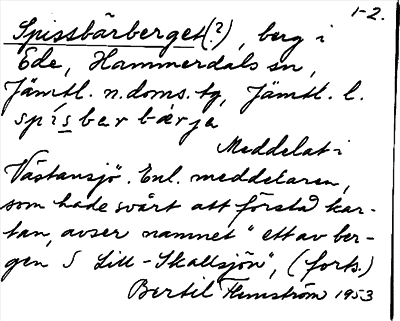 1-2.
Spissbärberget(?), berg i
Ede, Hammerdals sn,
Jämtl. n. doms. tg, Jämtl. l.
spisbarbärja
Meddelat i
Västansjö. Enl. meddelaren,
som hade svårt att förstå kar-
tan, avser namnet "ett av ber-
gen S Lill-Skallsjön", (forts.)
Bertil Flemström 1953